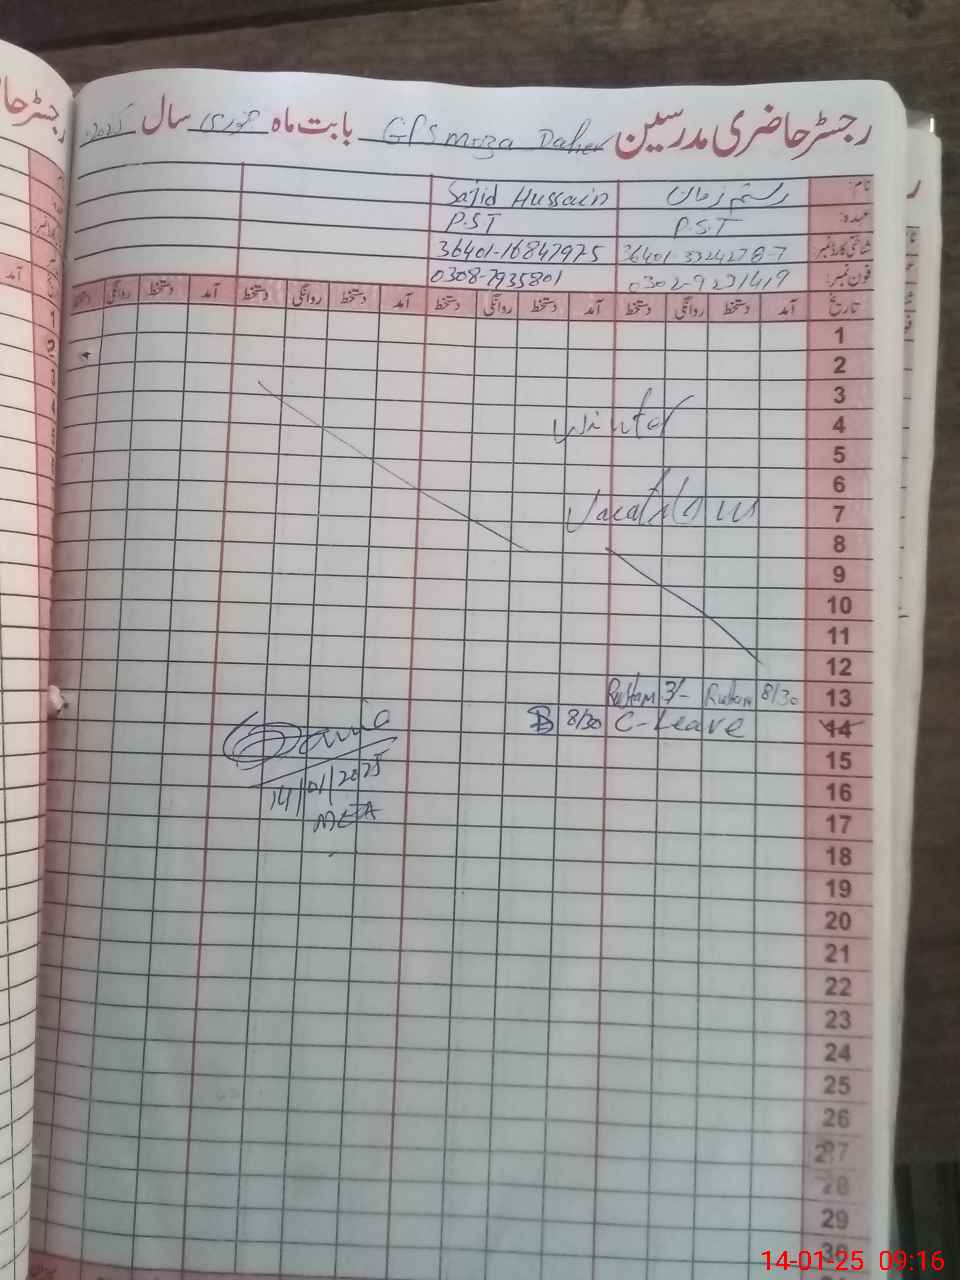 رجسٹر حاضری مدرسین GPS Moza Daher بابت ماہ جنوری سال 2025
نام: رستم زمان Sajid Hussain
عہدہ: P.S.T P.S.T
شناختی کارڈ نمبر: 36401-16847975
فون نمبر: 0302-9231419 0308-7935801
تاریخ آمد دستخط روانگی دستخط آمد دستخط روانگی دستخط آمد دستخط روانگی دستخط آمد دستخط روانگی دستخط
1
2
3
4 Winter
5
6
7 Vacations
8
9
10
11
12
13 8/30 Rustam 3/- Rustam
14 C-Leave 8/30
15
16
17
18
19
20
21
22
23
24
25
26
27
28
29
30
14/01/2025
MEA
رجسٹر حا
14-01-25 09:16